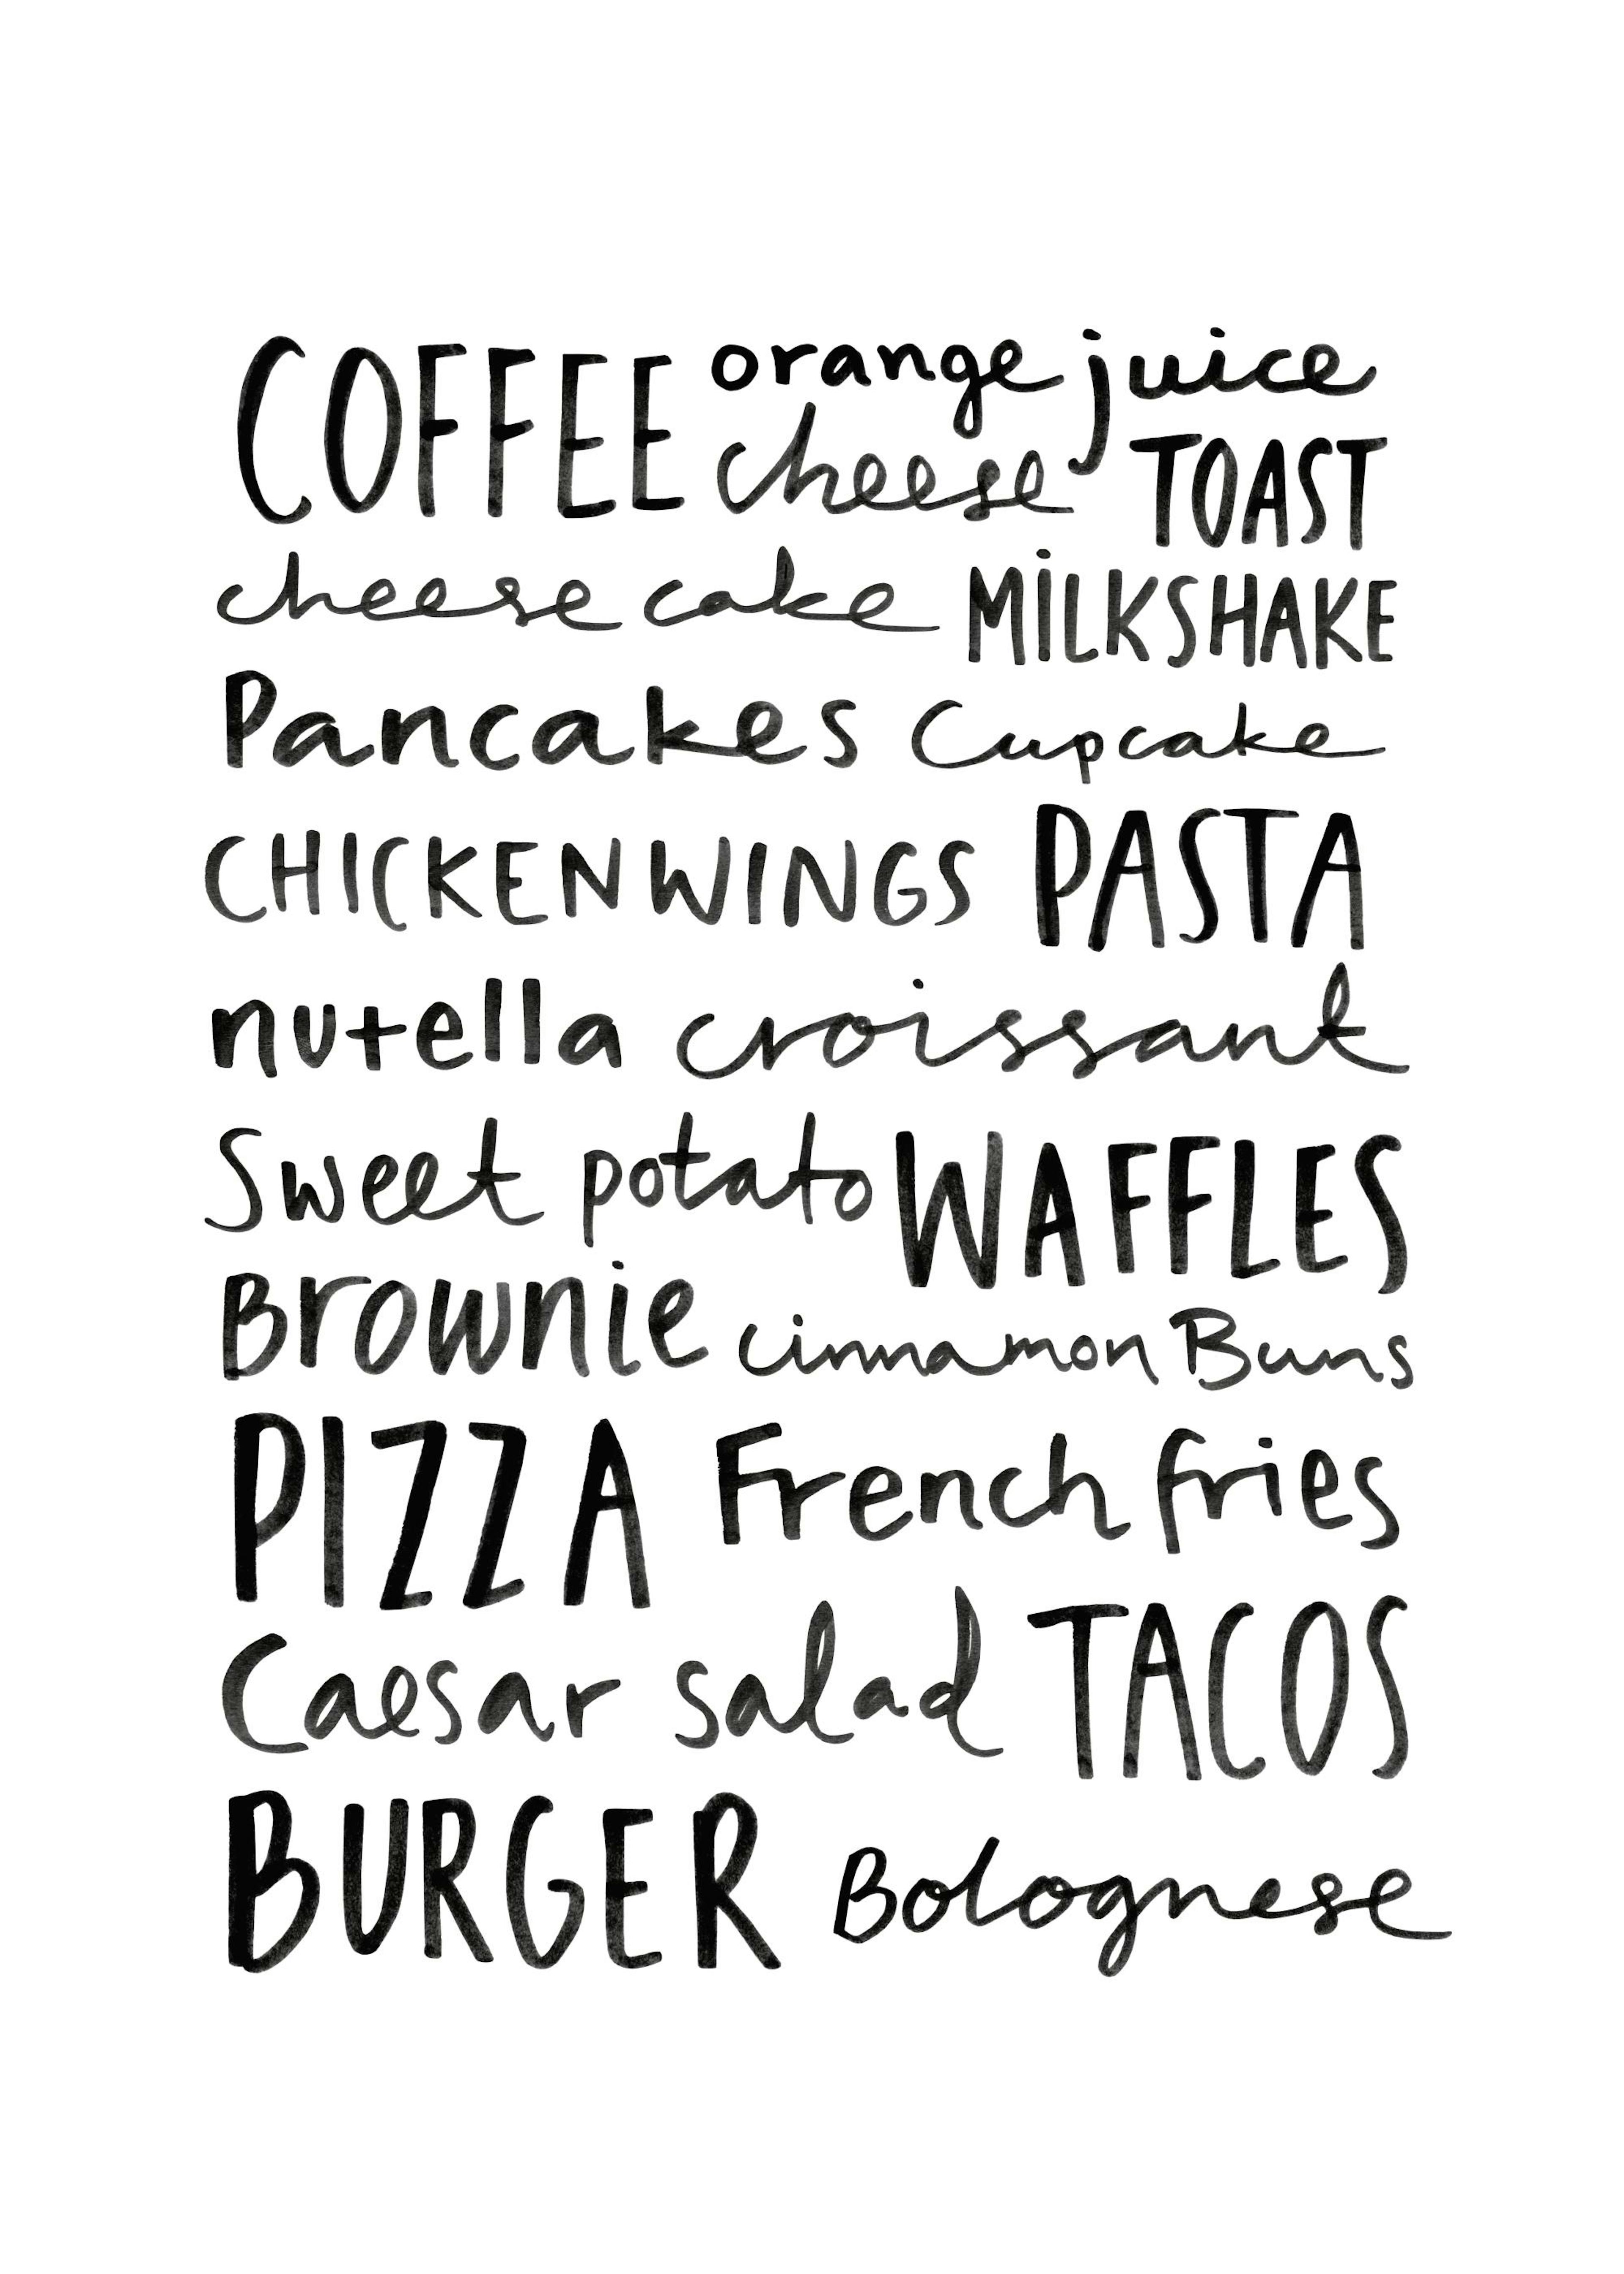 COFFEE orange juice
cheese TOAST
cheese cake MiLKSHAKE
Pancakes Cupcake
CHICKEN WINGS PASTA
nutella croissant
Sweet potato WAFFLES
Brownie cinnamon Buns
PIZZA French fries
Caesar salad TACOS
BURGER Bolognese